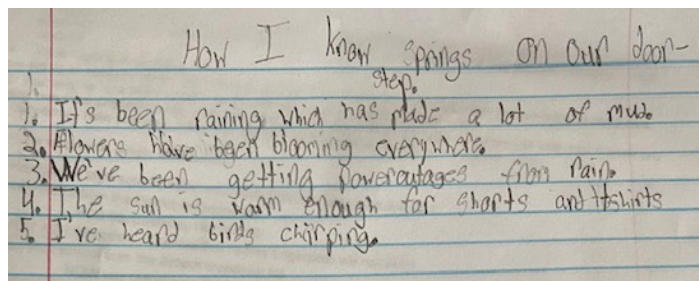 How I know springs on our door-
step.
1.
1. It's been raining which has made a lot of mud.
2. Flowers have been blooming everywhere.
3. We've been getting poweroutages from rain.
4. The sun is warm enough for shorts and tshirts
5. I've heard birds chirping.